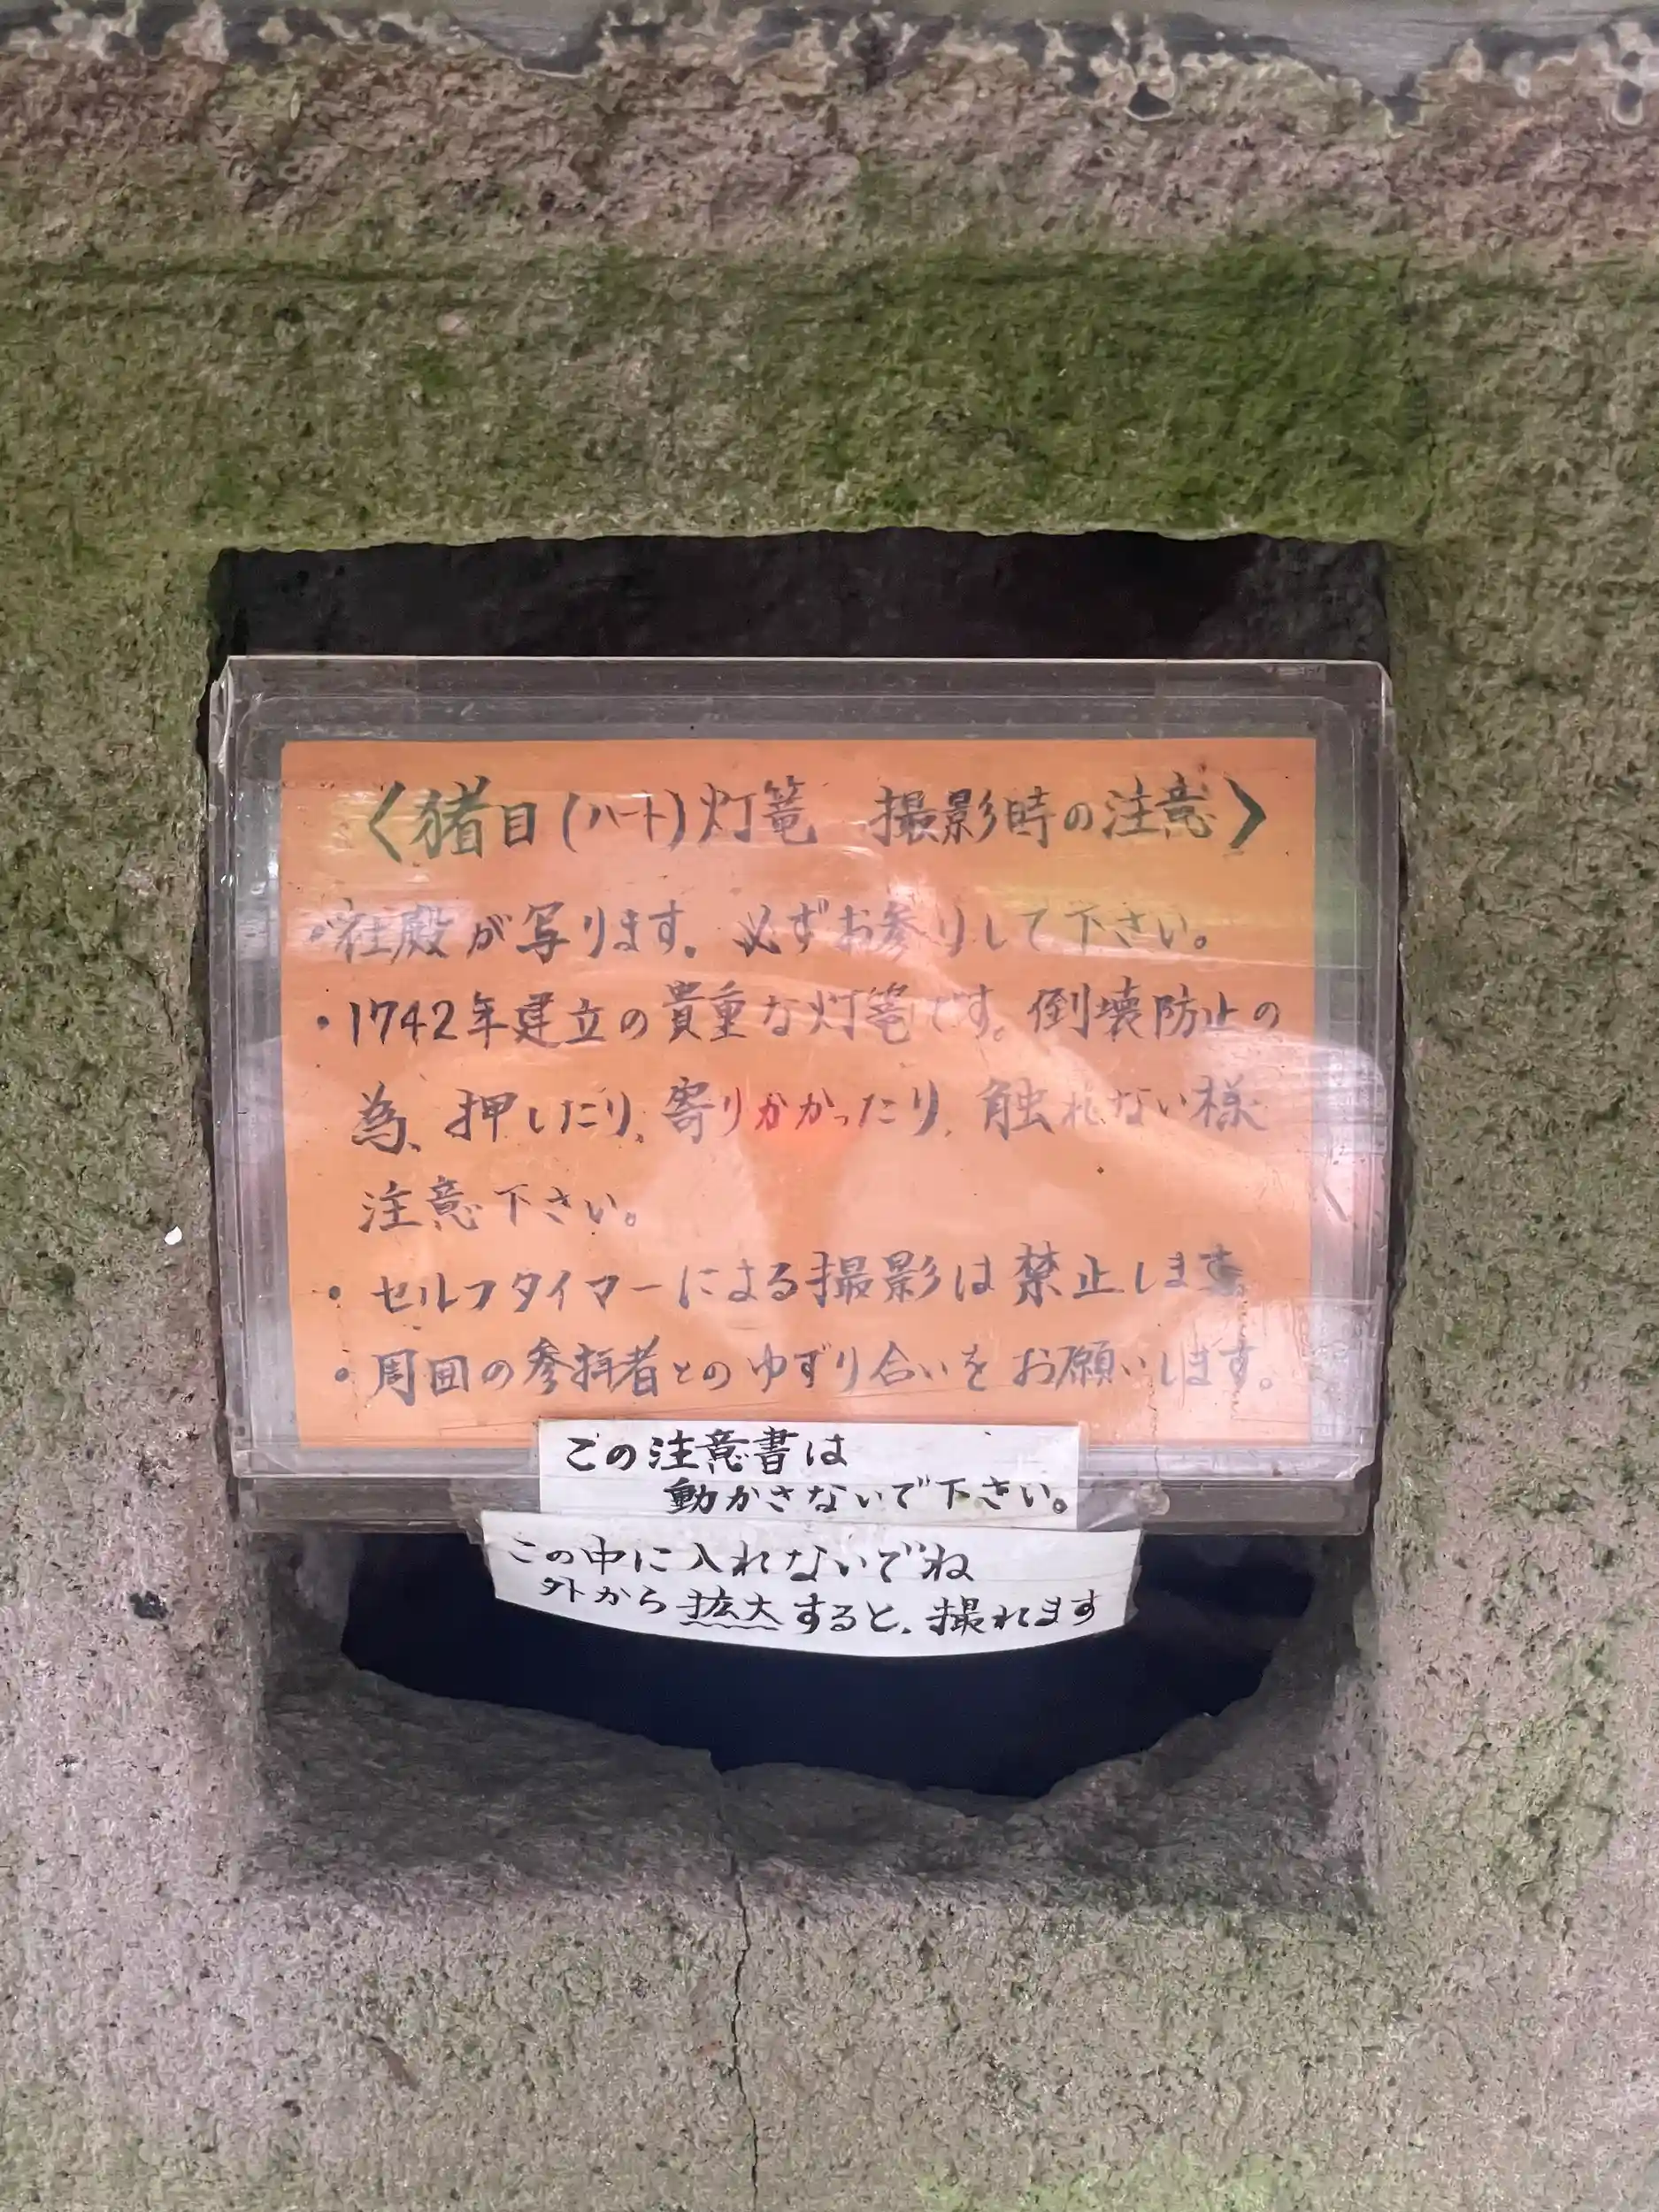 〈猪目(ハート)灯篭 撮影時の注意〉
・社殿が写ります。必ずお参りして下さい。
・1742年建立の貴重な灯篭です。倒壊防止の
為、押したり、寄りかかったり、触れない様
注意下さい。
・セルフタイマーによる撮影は禁止します。
・周囲の参拝者とのゆずり合いをお願いします。
この注意書は
動かさないで下さい。
この中に入れないでね
外から拡大すると、撮れます